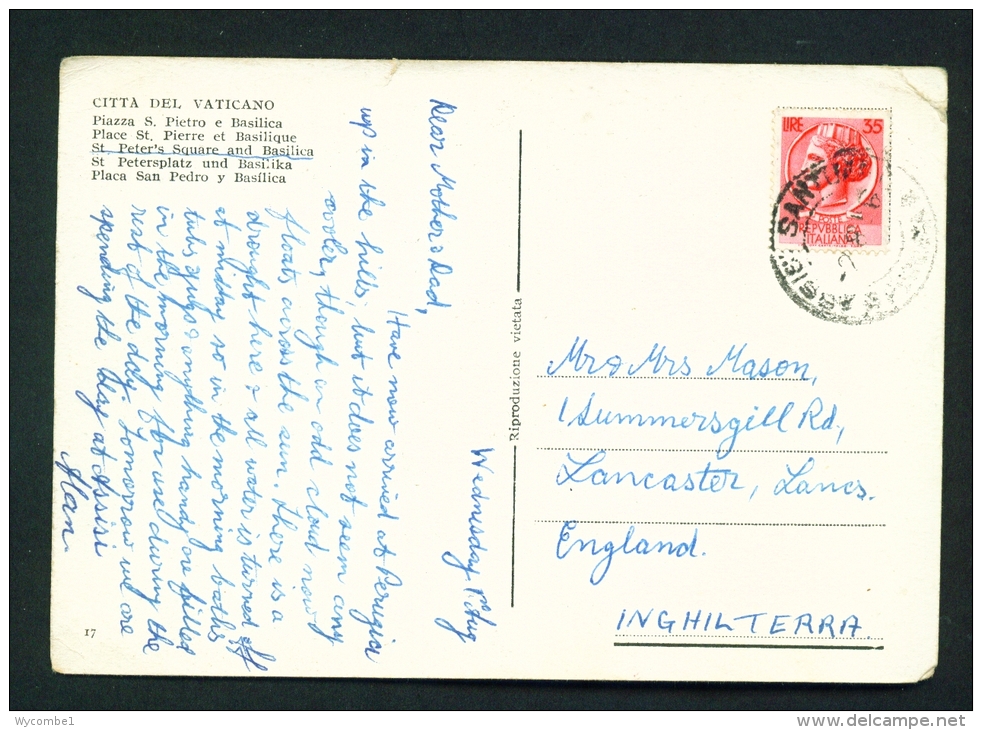 CITTÀ DEL VATICANO
Piazza S. Pietro e Basilica
Place St. Pierre et Basilique
St. Peter's Square and Basilica
St Petersplatz und Basilika
Placa San Pedro y Basílica
Wednesday, 1st Aug
Dear Mother & Dad,
Have now arrived at Perugia
up in the hills, but it does not seem any
cooler, though an odd cloud now &
floats across the sun. There is a
drought here & all water is turned off
at midday so in the morning baths
tubs, jugs & anything handy are filled
in the morning for use during the
rest of the day. Tomorrow we are
spending the day at Assisi
Alan.
17
Riproduzione vietata
LIRE 35
POSTE
REPVBBLICA
ITALIANA
ASSISI
Mr & Mrs Mason,
1 Summersgill Rd,
Lancaster, Lancs.
England.
INGHILTERRA.
Wycombe1
www.delcampe.net